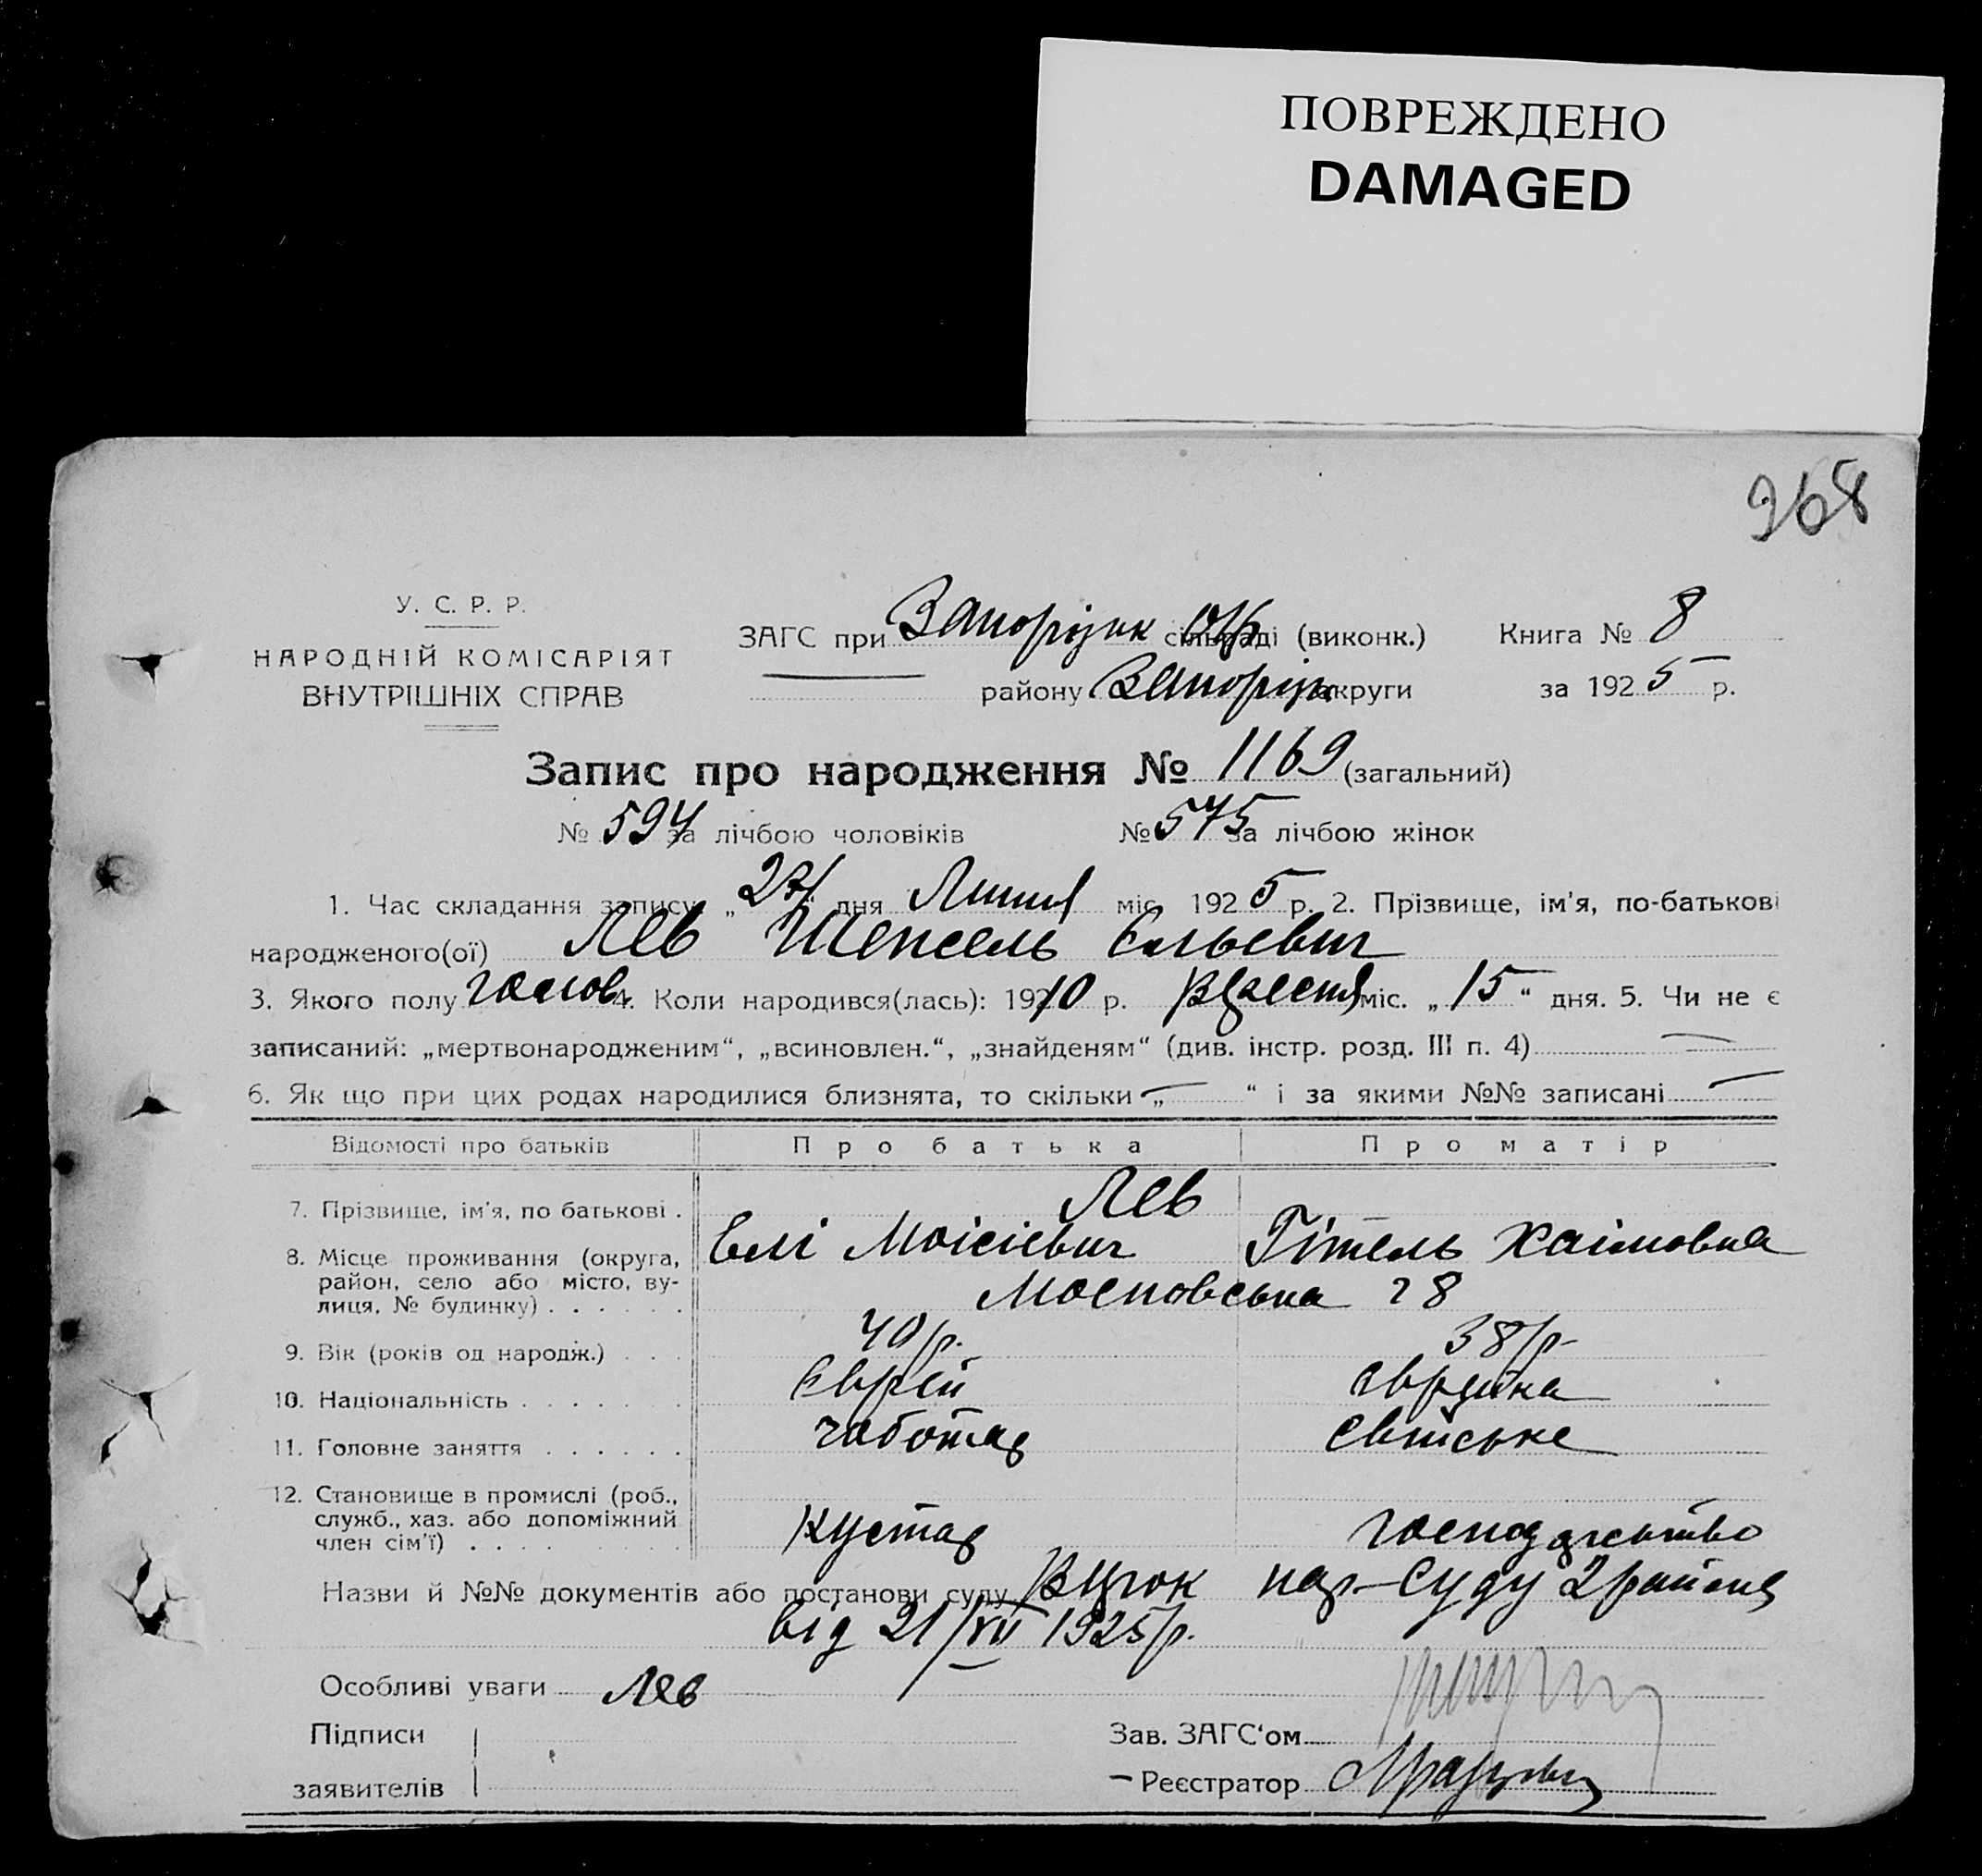 ПОВРЕЖДЕНО
DAMAGED
968
У. С. Р. Р.
НАРОДНІЙ КОМІСАРІЯТ
ВНУТРІШНІХ СПРАВ
ЗАГС при Запорізьк сільраді (виконк.) Книга № 8
району Запорізьк округи за 1925 р.
Запис про народження № 1169 (загальний)
№ 594 за лічбою чоловіків № 575 за лічбою жінок
1. Час складання запису „ “ дня Липня міс. 1925 р. 2. Прізвище, ім'я, по-батькові
народженого(ої) Лев Шепсель Ельевич
3. Якого полу чолов. 4. Коли народився(лась): 1910 р. Вересня міс. „15“ дня. 5. Чи не є
записаний: „мертвонародженим“, „всиновлен.“, „знайденям“ (див. інстр. розд. III п. 4) —
6. Як що при цих родах народилися близнята, то скільки „—“ і за якими №№ записані —
Відомості про батьків Про батька Про матір
7. Прізвище, ім'я, по батькові . Лев
Елі Моісієвич Гітель Хаімовна
8. Місце проживання (округа,
район, село або місто, ву-
лиця, № будинку) . . . . . . Московська 28
9. Вік (років од народж.) . . . 40 р. 38 р.
10. Національність . . . . . . Єврей Єврейка
11. Головне заняття . . . . . . чоботар Євтське
12. Становище в промислі (роб.,
служб., хаз. або допоміжний
член сім'ї) . . . . Кустар господарство
Назви й №№ документів або постанови суду Виток нар-Суду 2 района
від 21/VII 1925 р.
Особливі уваги Лев
Підписи Зав. ЗАГС'ом
заявителів — Реєстратор